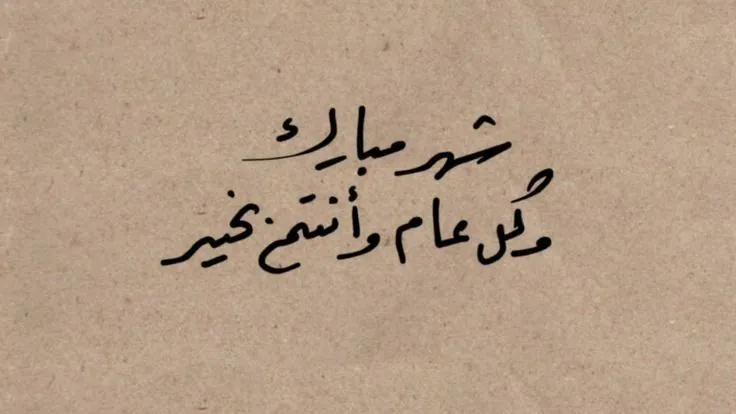 شهر مبارك
وكل عام وأنتم بخير